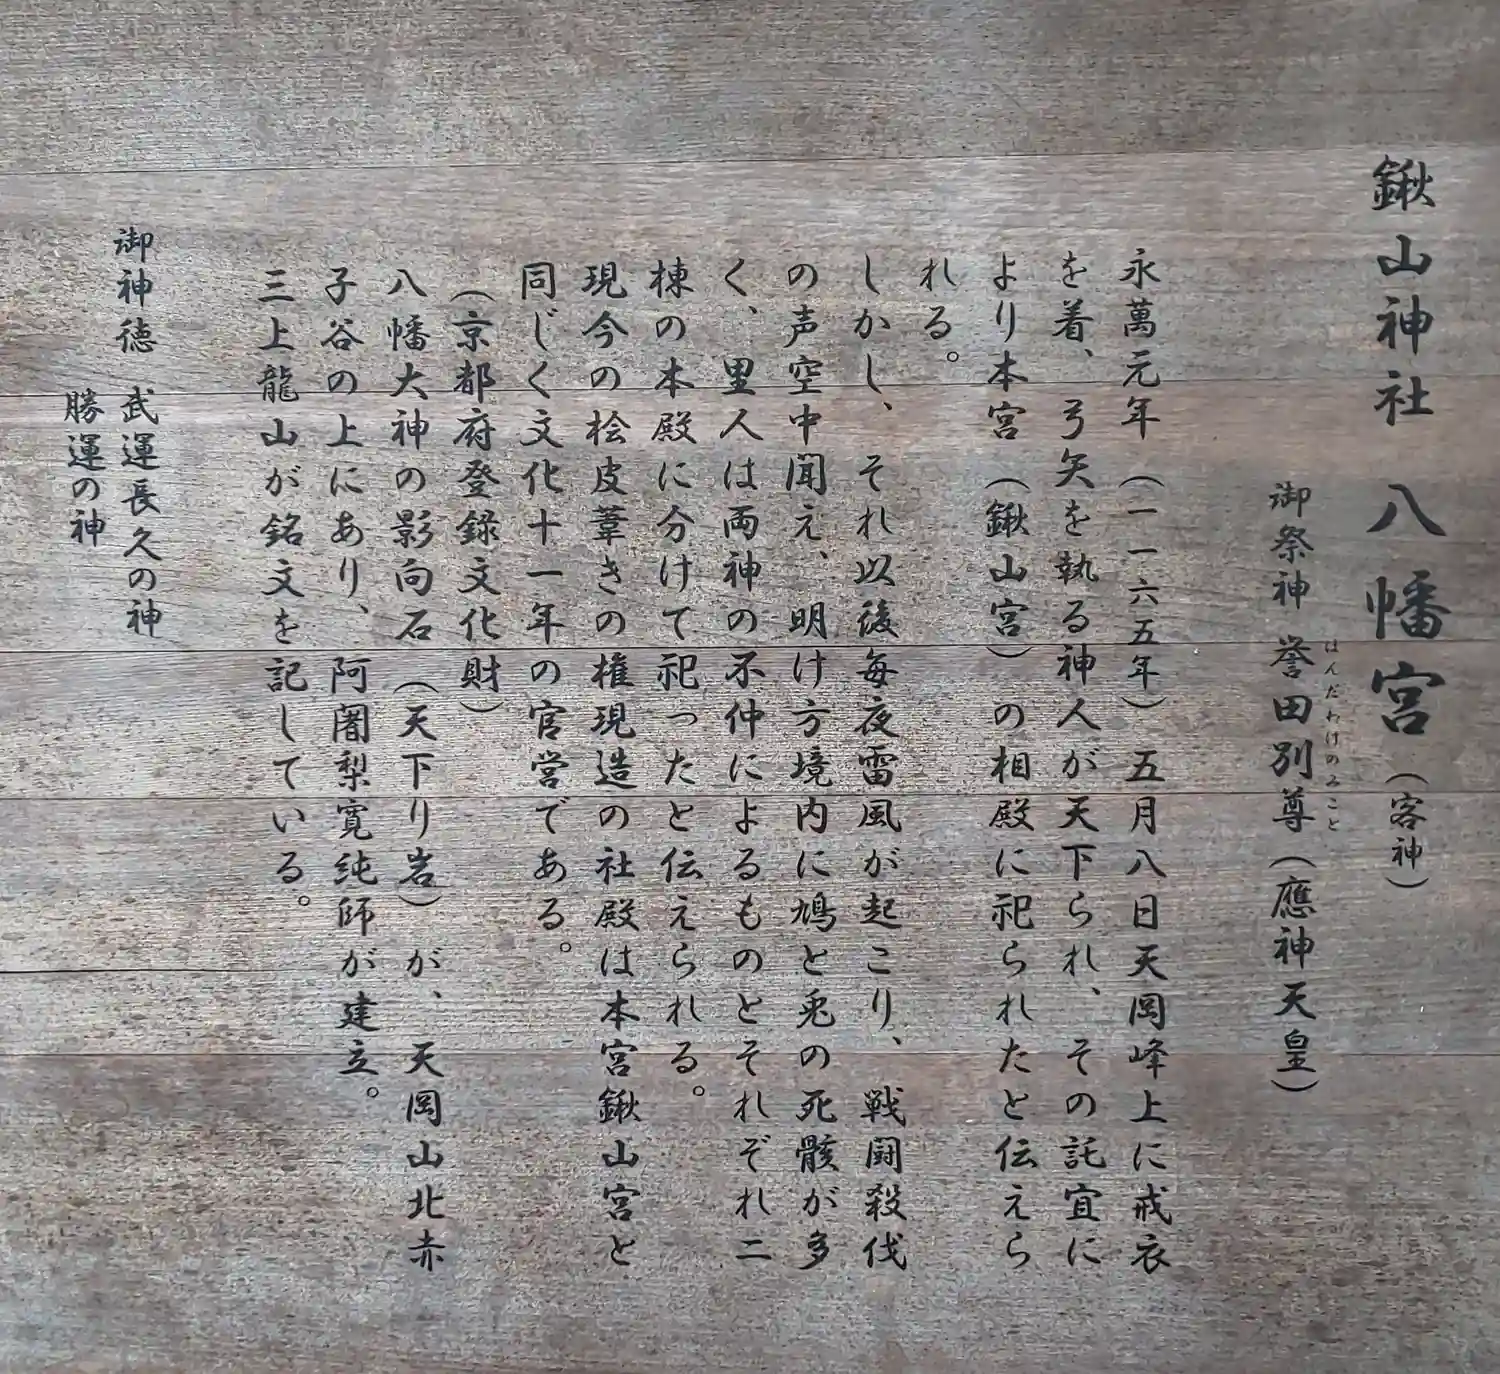 鍬山神社 八幡宮（客神）
御祭神 誉田別尊（應神天皇）
ほんだわけのみこと
永萬元年（一一六五年）五月八日天岡峰上に戒衣
を着、弓矢を執る神人が天下られ、その託宣に
より本宮（鍬山宮）の相殿に祀られたと伝えら
れる。
しかし、それ以後毎夜雷風が起こり、戦闘殺伐
の声空中聞え、明け方境内に鳩と兎の死骸が多
く、里人は両神の不仲によるものとそれぞれ二
棟の本殿に分けて祀ったと伝えられる。
現今の桧皮葺きの権現造の社殿は本宮鍬山宮と
同じく文化十一年の官営である。
（京都府登録文化財）
八幡大神の影向石（天下り岩）が、天岡山北赤
子谷の上にあり、阿闍梨寛純師が建立。
三上龍山が銘文を記している。
御神徳 武運長久の神
勝運の神